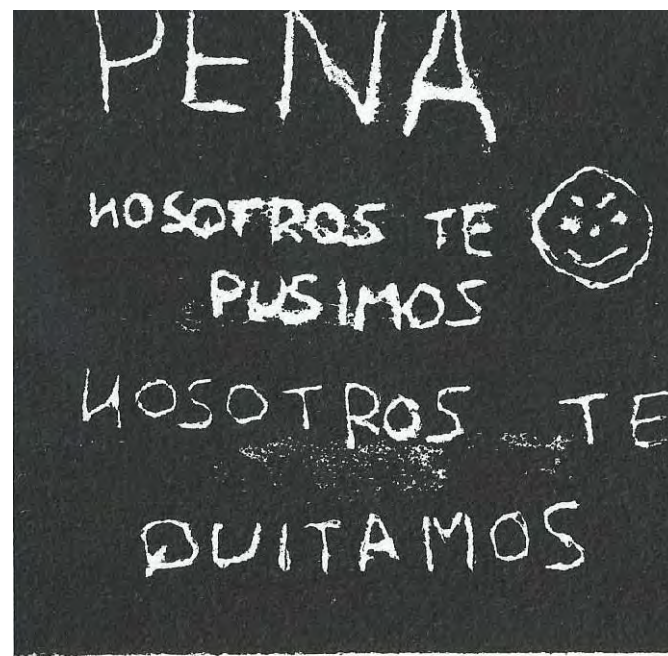 PENA
NOSOTROS TE
PUSIMOS
NOSOTROS TE
QUITAMOS